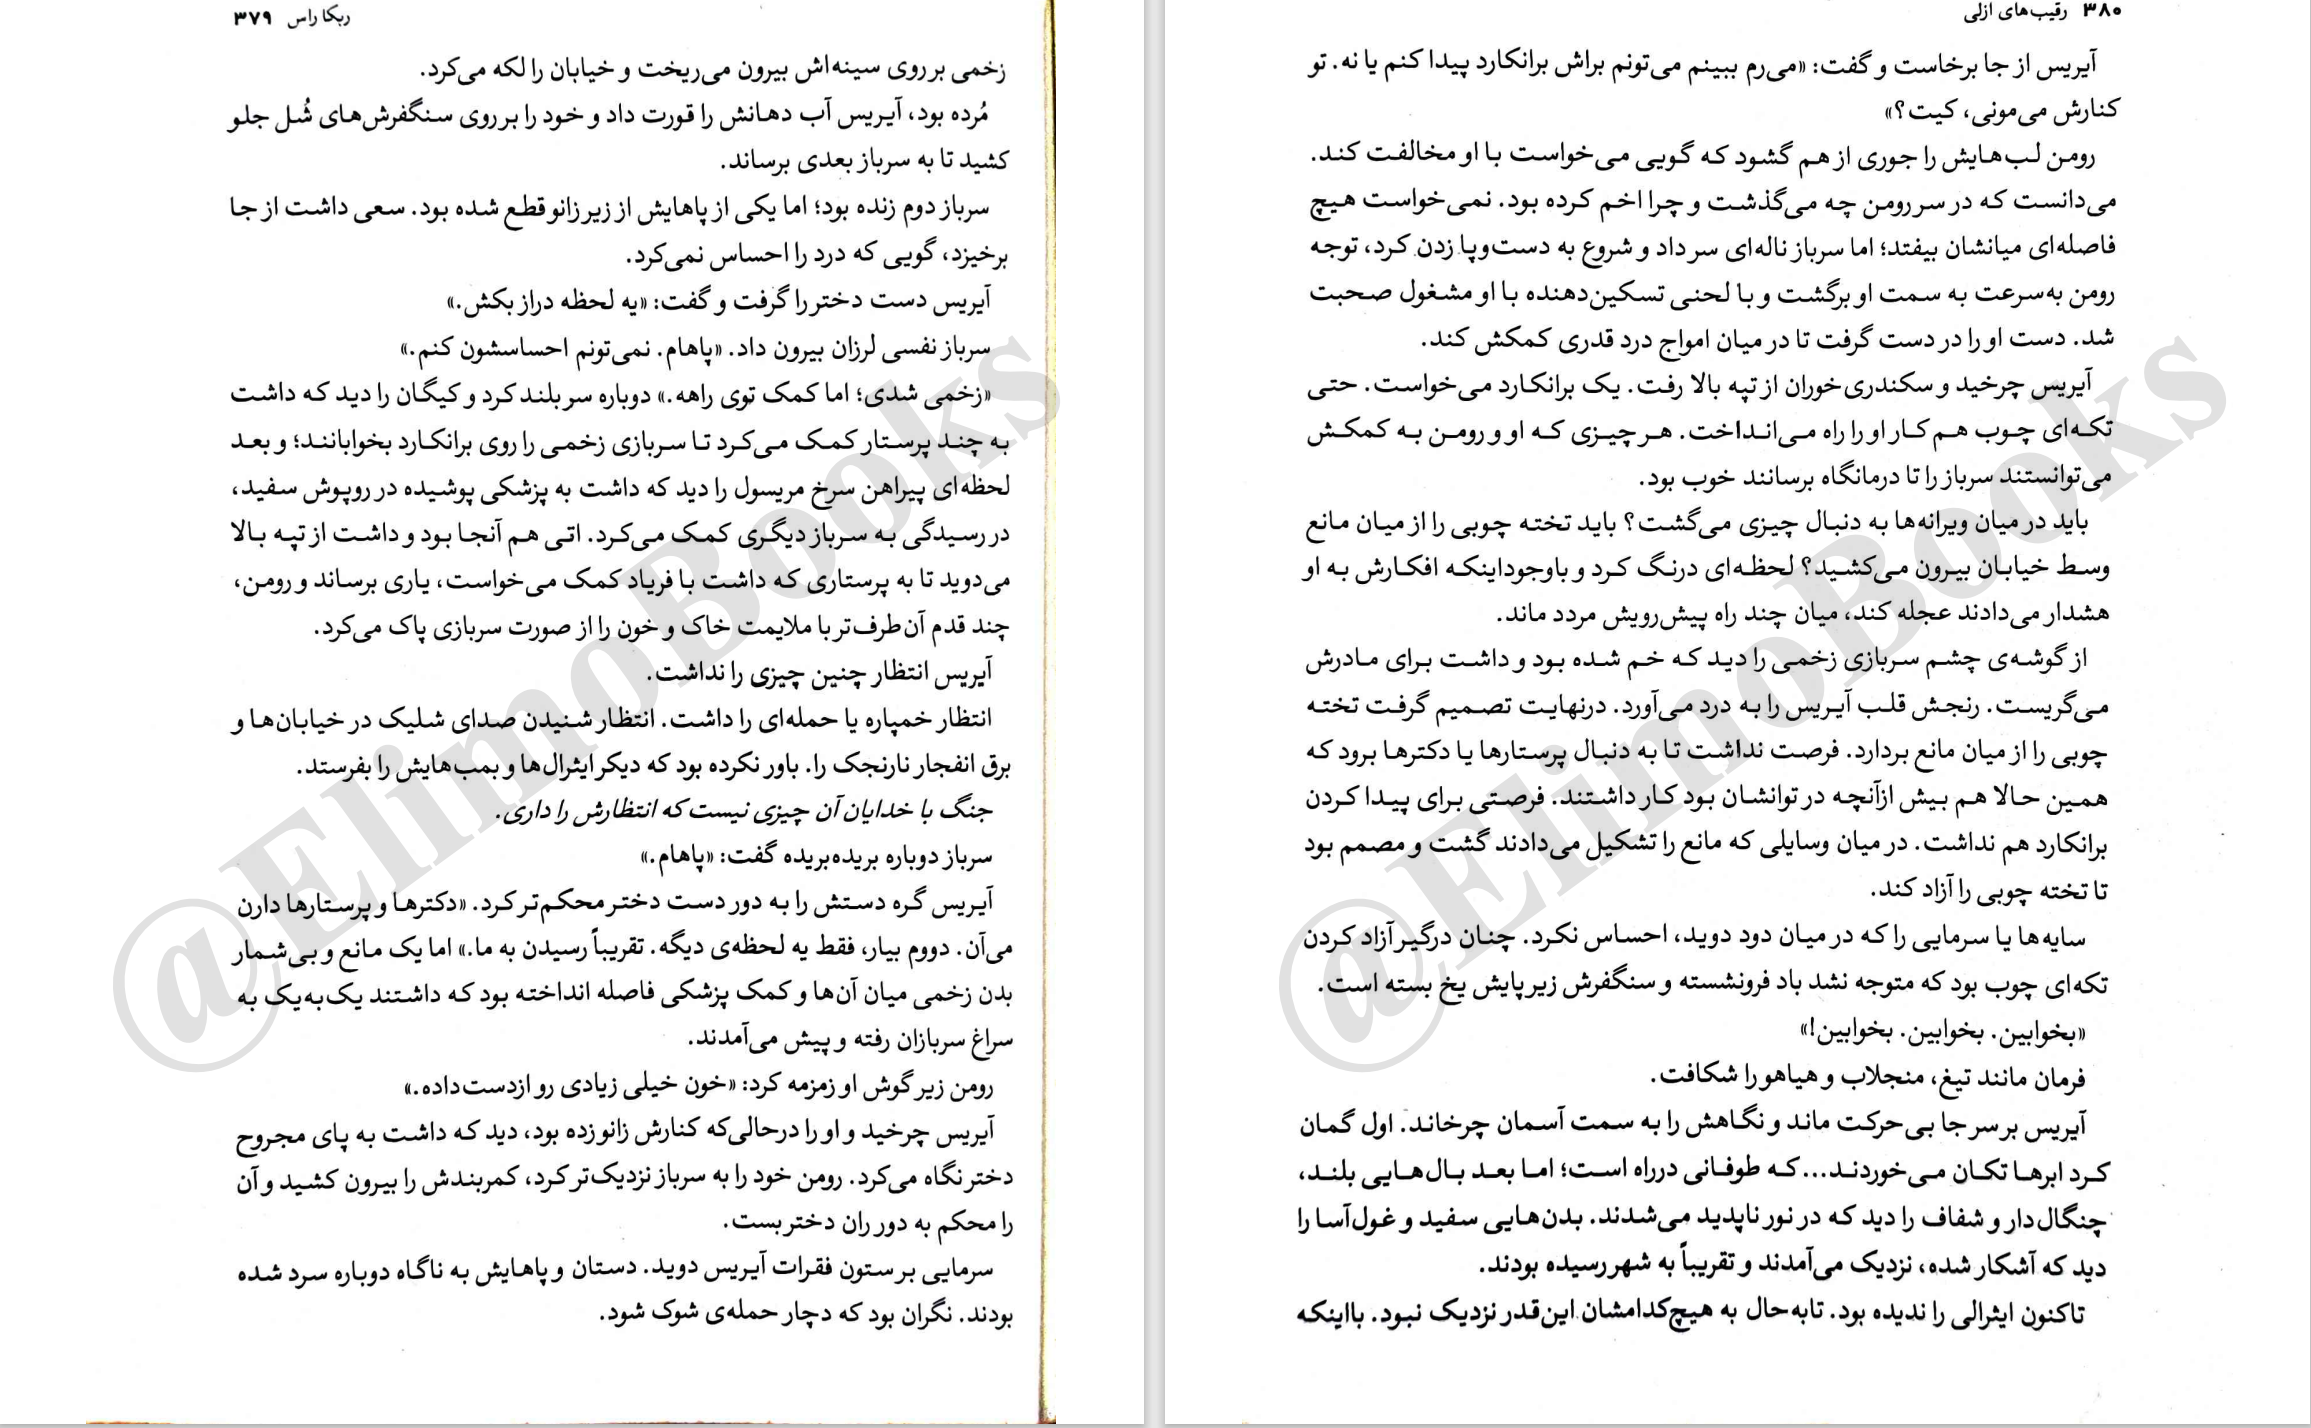 ربکا راس ۳۷۹
زخمی بر روی سینه‌اش بیرون می‌ریخت و خیابان را لکه می‌کرد.
مُرده بود، آیریس آب دهانش را قورت داد و خود را بر روی سنگفرش‌های شُل جلو
کشید تا به سرباز بعدی برساند.
سرباز دوم زنده بود؛ اما یکی از پاهایش از زیر زانو قطع شده بود. سعی داشت از جا
برخیزد، گویی که درد را احساس نمی‌کرد.
آیریس دست دختر را گرفت و گفت: «یه لحظه دراز بکش.»
سرباز نفسی لرزان بیرون داد. «پاهام. نمی‌تونم احساسشون کنم.»
«زخمی شدی؛ اما کمک توی راهه.» دوباره سر بلند کرد و کیگان را دید که داشت
به چند پرستار کمک می‌کرد تا سربازی زخمی را روی برانکارد بخوابانند؛ و بعد
لحظه‌ای پیراهن سرخ مریسول را دید که داشت به پزشکی پوشیده در روپوش سفید،
در رسیدگی به سرباز دیگری کمک می‌کرد. اتی هم آنجا بود و داشت از تپه بالا
می‌دوید تا به پرستاری که داشت با فریاد کمک می‌خواست، یاری برساند و رومن،
چند قدم آن‌طرف‌تر با ملایمت خاک و خون را از صورت سربازی پاک می‌کرد.
آیریس انتظار چنین چیزی را نداشت.
انتظار خمپاره یا حمله‌ای را داشت. انتظار شنیدن صدای شلیک در خیابان‌ها و
برق انفجار نارنجک را. باور نکرده بود که دیکر ایثرال‌ها و بمب‌هایش را بفرستد.
جنگ با خدایان آن چیزی نیست که انتظارش را داری.
سرباز دوباره بریده‌بریده گفت: «پاهام.»
آیریس گره دستش را به دور دست دختر محکم‌تر کرد. «دکترها و پرستارها دارن
می‌آن. دووم بیار، فقط یه لحظه‌ی دیگه. تقریباً رسیدن به ما.» اما یک مانع و بی‌شمار
بدن زخمی میان آن‌ها و کمک پزشکی فاصله انداخته بود که داشتند یک‌به‌یک به
سراغ سربازان رفته و پیش می‌آمدند.
رومن زیر گوش او زمزمه کرد: «خون خیلی زیادی رو ازدست‌داده.»
آیریس چرخید و او را درحالی‌که کنارش زانو زده بود، دید که داشت به پای مجروح
دختر نگاه می‌کرد. رومن خود را به سرباز نزدیک‌تر کرد، کمربندش را بیرون کشید و آن
را محکم به دور ران دختر بست.
سرمایی بر ستون فقرات آیریس دوید. دستان و پاهایش به ناگاه دوباره سرد شده
بودند. نگران بود که دچار حمله‌ی شوک شود.
۳۸۰ رقیب‌های ازلی
آیریس از جا برخاست و گفت: «می‌رم ببینم می‌تونم براش برانکارد پیدا کنم یا نه. تو
کنارش می‌مونی، کیت؟»
رومن لب‌هایش را جوری از هم گشود که گویی می‌خواست با او مخالفت کند.
می‌دانست که در سر رومن چه می‌گذشت و چرا اخم کرده بود. نمی‌خواست هیچ
فاصله‌ای میانشان بیفتد؛ اما سرباز ناله‌ای سر داد و شروع به دست‌وپا زدن کرد، توجه
رومن به‌سرعت به سمت او برگشت و با لحنی تسکین‌دهنده با او مشغول صحبت
شد. دست او را در دست گرفت تا در میان امواج درد قدری کمکش کند.
آیریس چرخید و سکندری‌خوران از تپه بالا رفت. یک برانکارد می‌خواست. حتی
تکه‌ای چوب هم کار او را راه می‌انداخت. هر چیزی که او و رومن به کمکش
می‌توانستند سرباز را تا درمانگاه برسانند خوب بود.
باید در میان ویرانه‌ها به دنبال چیزی می‌گشت؟ باید تخته چوبی را از میان مانع
وسط خیابان بیرون می‌کشید؟ لحظه‌ای درنگ کرد و باوجوداینکه افکارش به او
هشدار می‌دادند عجله کند، میان چند راه پیش‌رویش مردد ماند.
از گوشه‌ی چشم سربازی زخمی را دید که خم شده بود و داشت برای مادرش
می‌گریست. رنجش قلب آیریس را به درد می‌آورد. درنهایت تصمیم گرفت تخته
چوبی را از میان مانع بردارد. فرصت نداشت تا به دنبال پرستارها یا دکترها برود که
همین حالا هم بیش ازآنچه در توانشان بود کار داشتند. فرصتی برای پیدا کردن
برانکارد هم نداشت. در میان وسایلی که مانع را تشکیل می‌دادند گشت و مصمم بود
تا تخته چوبی را آزاد کند.
سایه‌ها یا سرمایی را که در میان دود دوید، احساس نکرد. چنان درگیر آزاد کردن
تکه‌ای چوب بود که متوجه نشد باد فرونشسته و سنگفرش زیر پایش یخ بسته است.
«بخوابین. بخوابین. بخوابین!»
فرمان مانند تیغ، منجلاب و هیاهو را شکافت.
آیریس بر سر جا بی‌حرکت ماند و نگاهش را به سمت آسمان چرخاند. اول گمان
کرد ابرها تکان می‌خوردند... که طوفانی درراه است؛ اما بعد بال‌هایی بلند،
چنگال‌دار و شفاف را دید که در نور ناپدید می‌شدند. بدن‌هایی سفید و غول‌آسا را
دید که آشکار شده، نزدیک می‌آمدند و تقریباً به شهر رسیده بودند.
تاکنون ایثرالی را ندیده بود. تابه‌حال به هیچ‌کدامشان این‌قدر نزدیک نبود. بااینکه
@ElimoBooks
@ElimoBooks